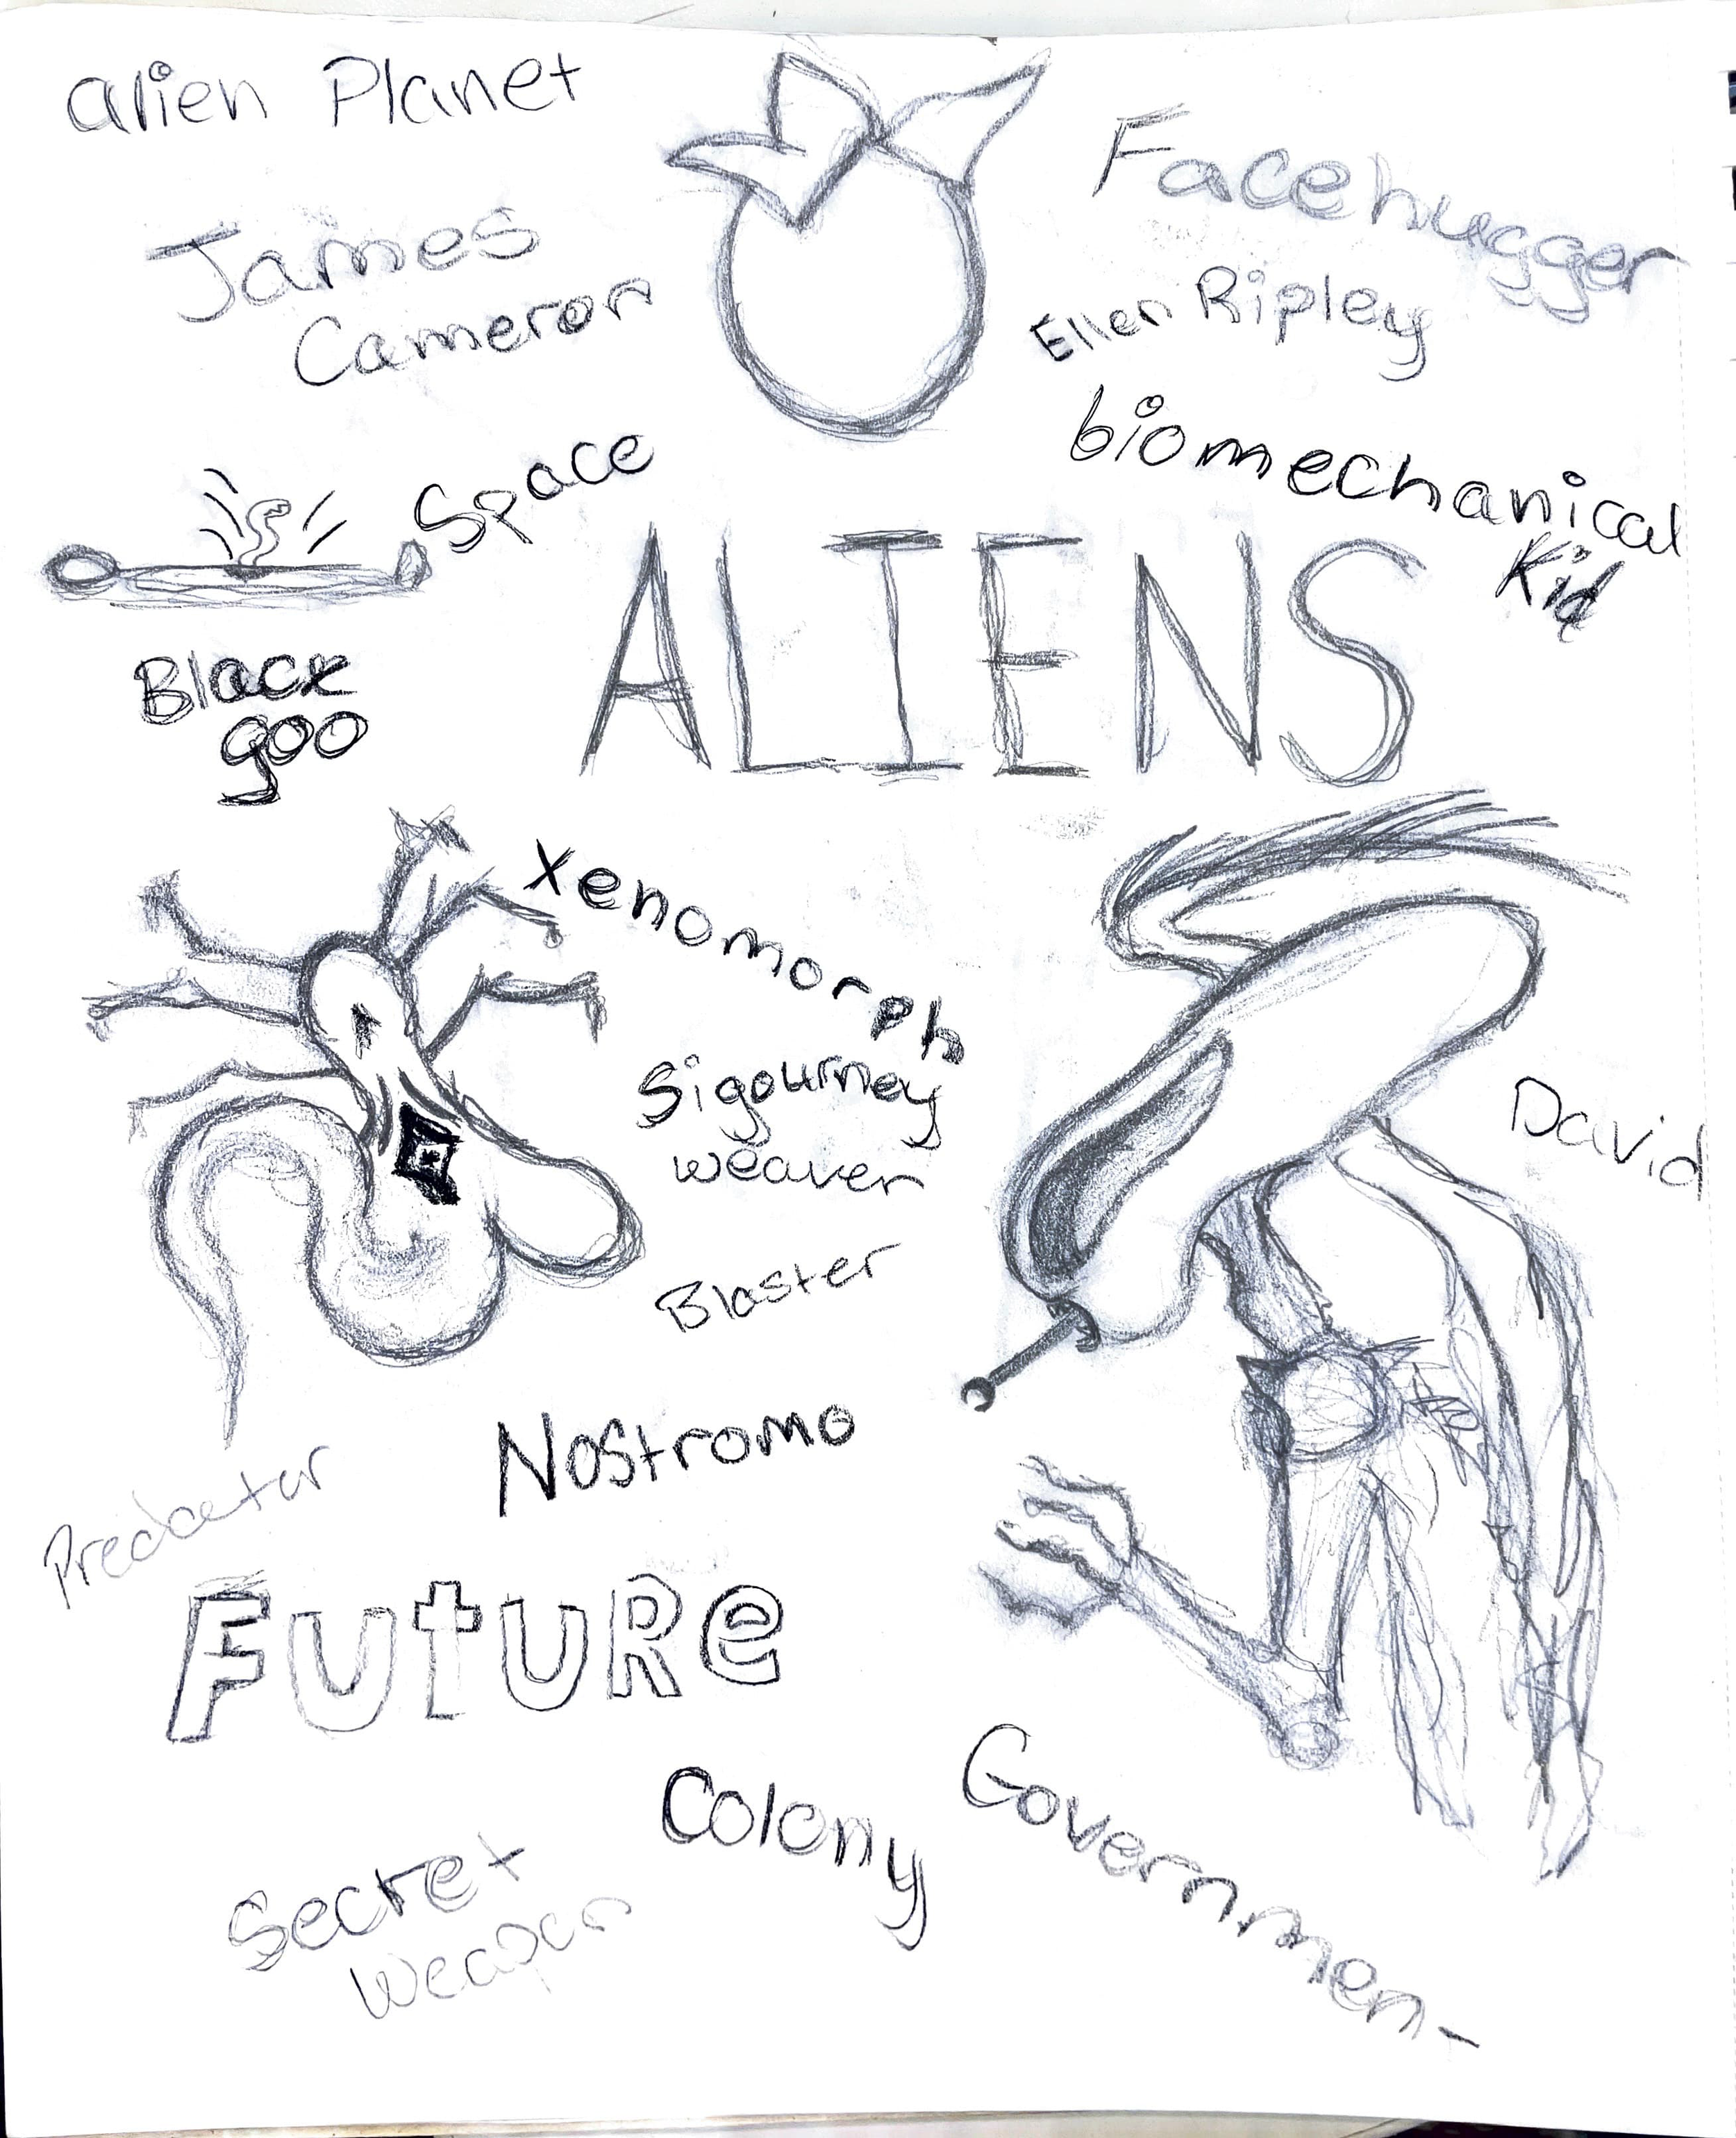 alien Planet
James
Cameron
Facehugger
Ellen Ripley
biomechanical
Kid
Space
ALIENS
Black
goo
Xenomorph
Sigourney
weaver
David
Blaster
Nostromo
Predaetor
FUtURe
Colony
Governmen-
Secret
Weapon